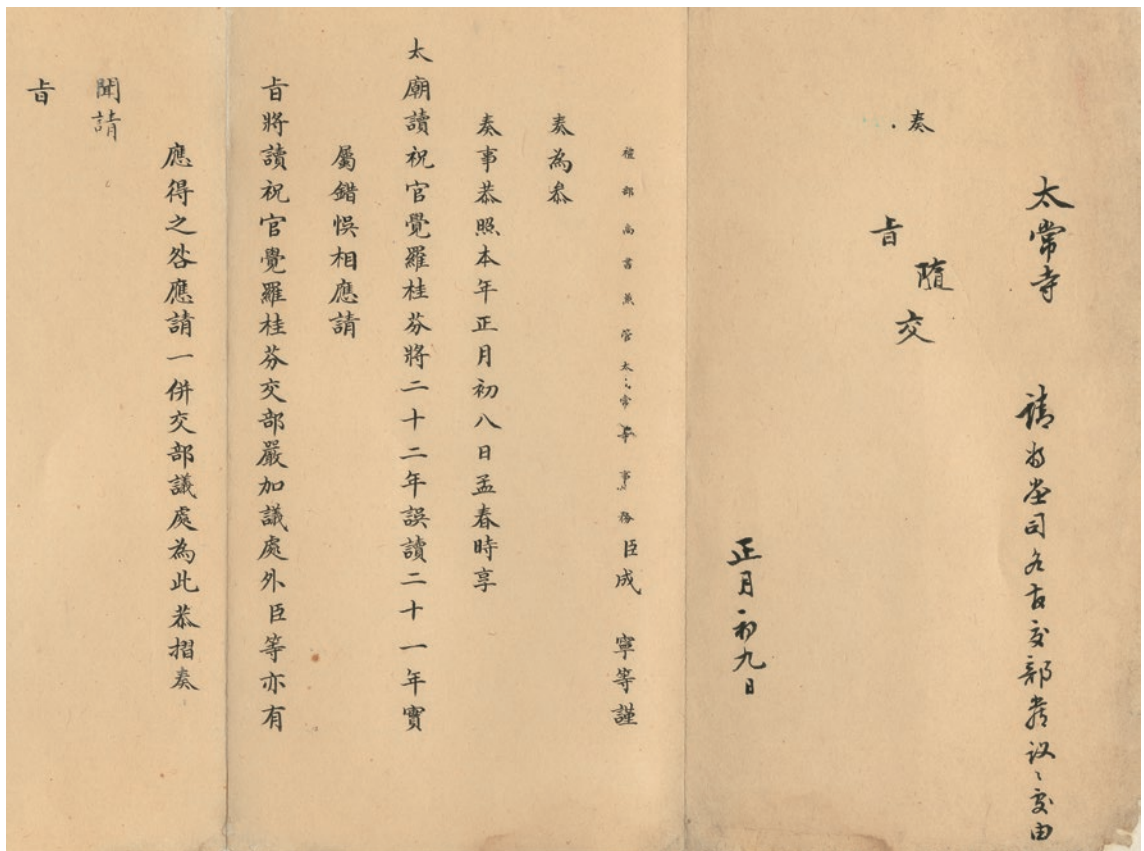 太常寺　請將堂司各官交部嚴議、處由
奏
隨
旨　交
正月初九日
禮部尚書兼管太常寺事務臣成　寧等謹
奏為叅
奏事恭照本年正月初八日孟春時享
太廟讀祝官覺羅桂芬將二十二年誤讀二十一年實
屬錯悞相應請
旨將讀祝官覺羅桂芬交部嚴加議處外臣等亦有
應得之咎應請一併交部議處為此恭摺奏
聞請
旨